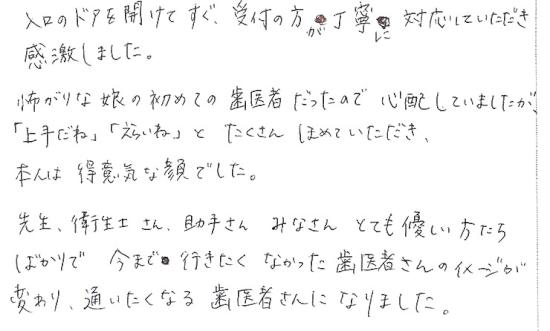 入口のドアを開けてすぐ、受付の方が丁寧に対応していただき
感激しました。
怖がりな娘の初めての歯医者だったので心配していましたが、
「上手だね」「えらいね」とたくさんほめていただき、
本人は得意気な顔でした。
先生、衛生士さん、助手さんみなさんとても優しい方たち
ばかりで今まで行きたくなかった歯医者さんのイメージが
変わり、通いたくなる歯医者さんになりました。